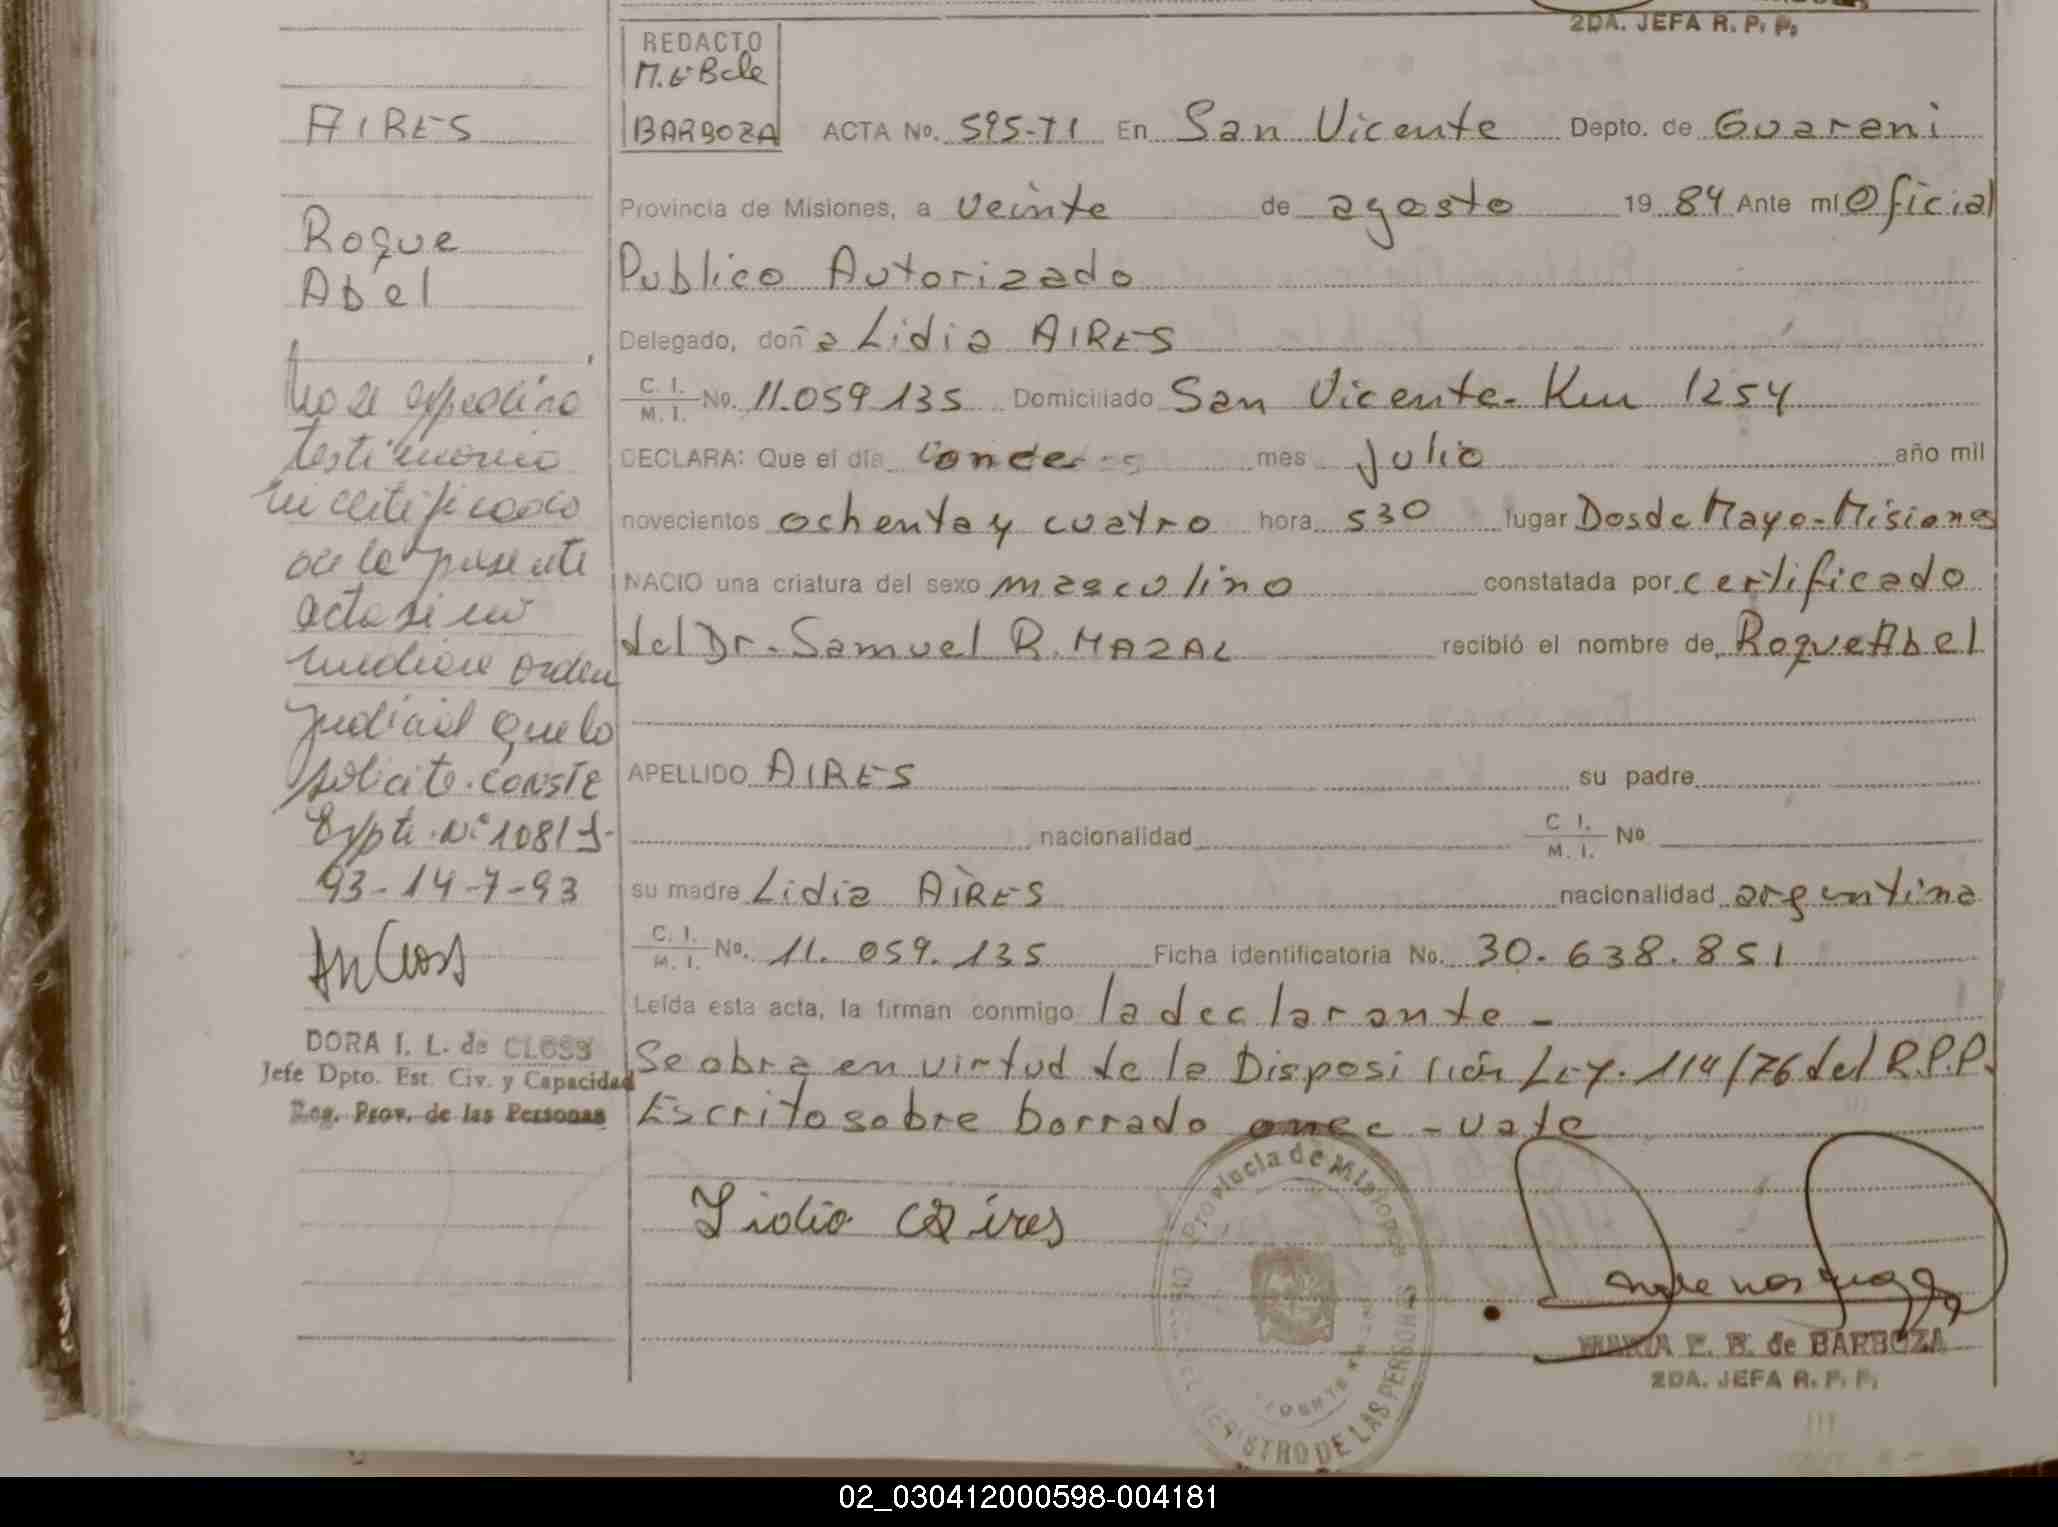 2DA. JEFA R. P. P.
REDACTO
M. E. B de
BARBOZA
AIRES
Roque
Abel
No se expedirá
testimonio
ni certificado
de la presente
acta si no
mediare orden
judicial que lo
solicite. CONSTE
Expte. Nº 1081 J-
93-14-7-93
DORA I. L. de CLOSS
Jefe Dpto. Est. Civ. y Capacidad
Reg. Prov. de las Personas
ACTA No. 595-T1 En San Vicente Depto. de Guarani
Provincia de Misiones, a veinte de agosto 19 84 Ante mi Oficial
Publico Autorizado
Delegado, doña Lidia AIRES
C. I.
M. I. No. 11.059.135 Domiciliado San Vicente - Km 1254
DECLARA: Que el día once mes Julio año mil
novecientos ochenta y cuatro hora 530 lugar Dos de Mayo-Misiones
NACIO una criatura del sexo masculino constatada por certificado
del Dr. Samuel R. MAZAL recibió el nombre de Roque Abel
APELLIDO AIRES su padre
nacionalidad C. I.
M. I. No
su madre Lidia AIRES nacionalidad argentina
C. I.
M. I. No. 11.059.135 Ficha identificatoria No. 30.638.851
Leída esta acta, la firman conmigo la declarante -
Se obra en virtud de la Disposición Ley. 114/76 del R.P.P.
Escrito sobre borrado once - vale
Lidia Aires
Provincia de Misiones
REGISTRO DE LAS PERSONAS
MARIA E. B. de BARBOZA
2DA. JEFA R. P. P.
02_030412000598-004181